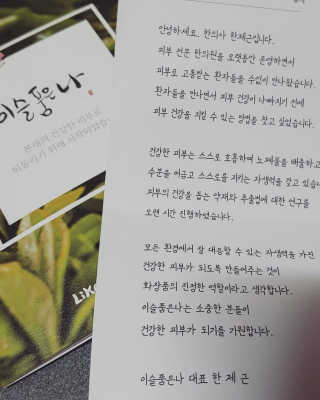 이슬품은나
본래의 건강한 피부로
되돌리기 위해 시작되었습
LiKe
안녕하세요. 한의사 한제근입니다.
피부 전문 한의원을 오랫동안 운영하면서
피부로 고통받는 환자들을 수없이 만나왔습니다.
환자들을 만나면서 피부 건강이 나빠지기 전에
피부 건강을 지킬 수 있는 방법을 찾고 싶었습니다.
건강한 피부는 스스로 호흡하며 노폐물을 배출하고
수분을 머금고 스스로를 지키는 자생력을 갖고 있습니
피부의 건강을 돕는 약재와 추출법에 대한 연구를
오랜 시간 진행하였습니다.
모든 환경에서 잘 대응할 수 있는 자생력을 가진
건강한 피부가 되도록 만들어주는 것이
화장품의 진정한 역할이라고 생각합니다.
이슬품은나는 소중한 분들이
건강한 피부가 되기를 기원합니다.
이슬품은나 대표 한 제 근